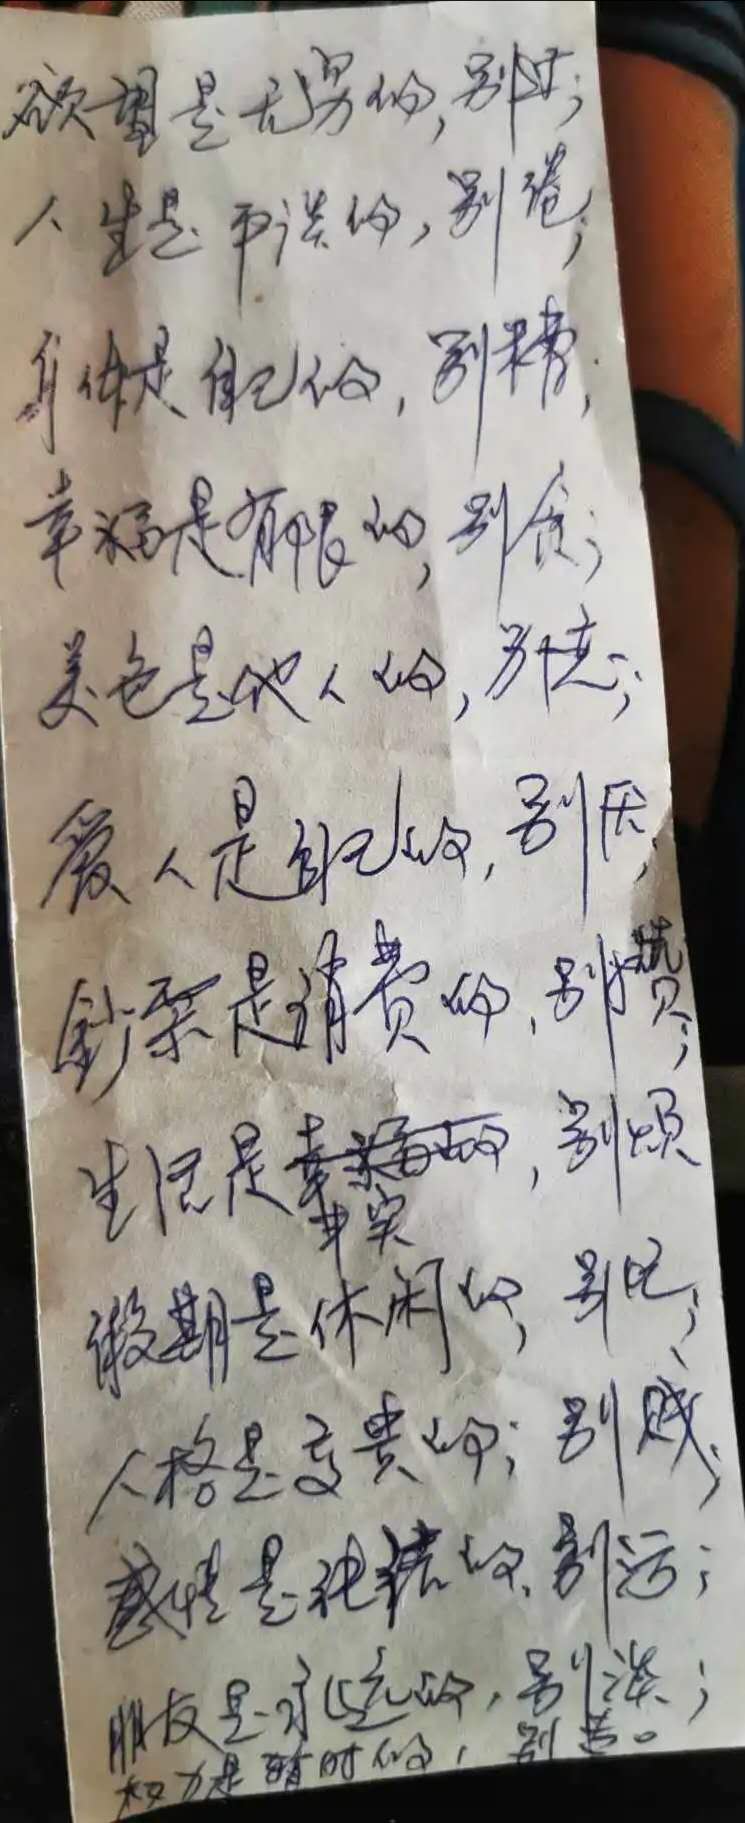 欲望是无穷的,别过;
人生是平淡的,别倦;
身体是自己的,别糟;
幸福是有限的,别贪;
美色是他人的,别恋;
爱人是自己的,别厌;
鈔票是消費的,别攒;
生活是充实,别烦
假期是休闲的,别吃;
人格是高贵的;别贱;
感情是纯洁的,别污;
朋友是永远的,别淡;
权力是暂时的,别